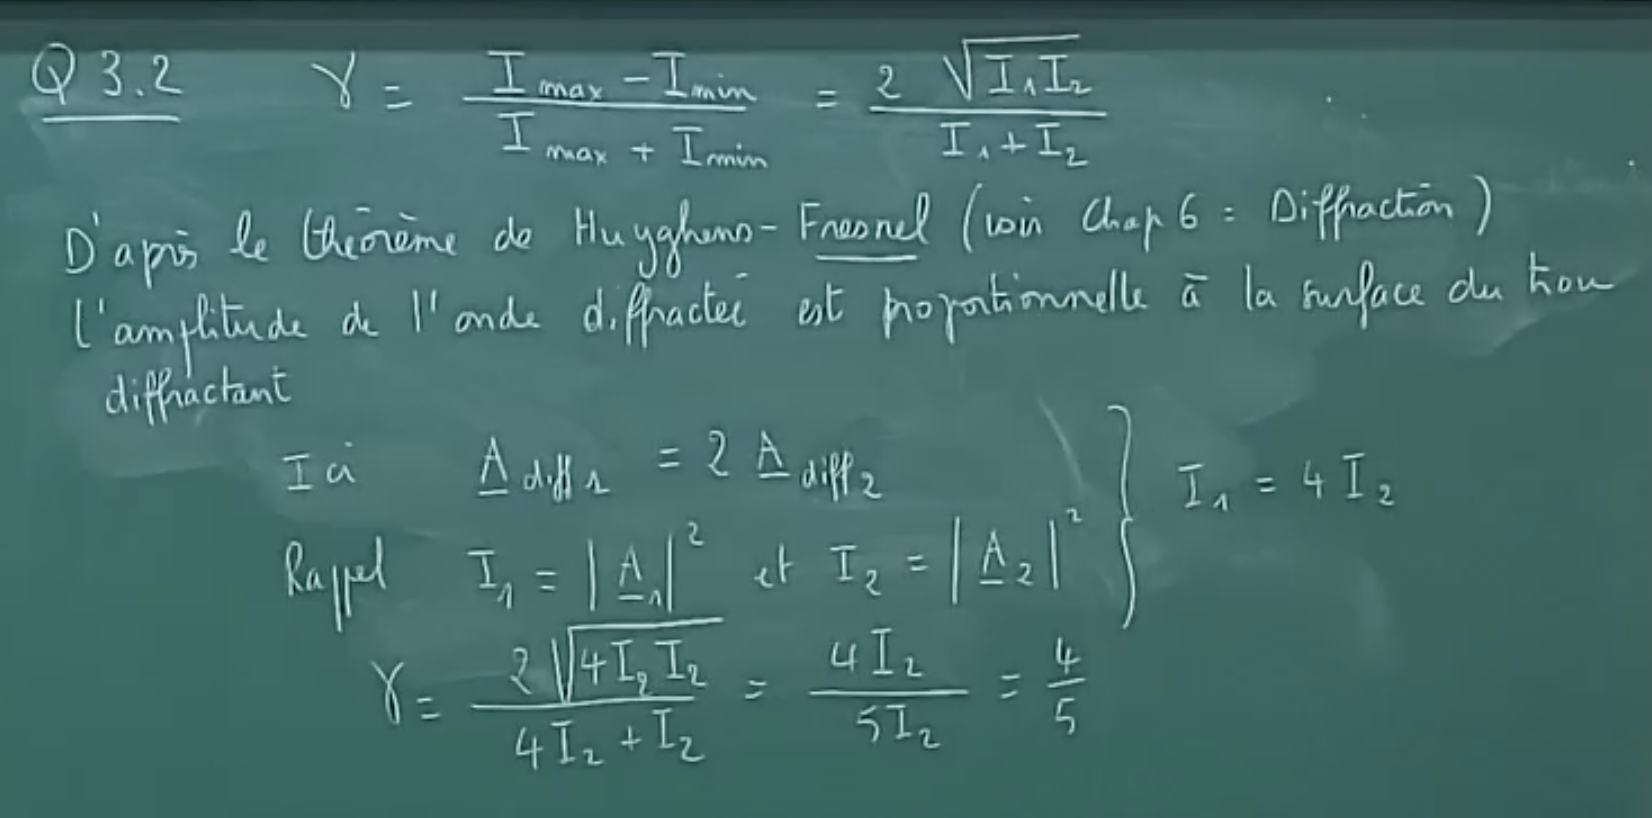 Q 3.2 γ = (I max - I min) / (I max + I min) = 2 √(I₁I₂) / (I₁ + I₂)
D'après le théorème de Huyghens-Fresnel (voir Chap 6 : Diffraction)
l'amplitude de l'onde diffractée est proportionnelle à la surface du trou
diffractant
Ici A diff 1 = 2 A diff 2
Rappel I₁ = |A₁|² et I₂ = |A₂|² } I₁ = 4 I₂
γ = 2 √(4I₂ I₂) / (4I₂ + I₂) = 4I₂ / 5I₂ = 4/5